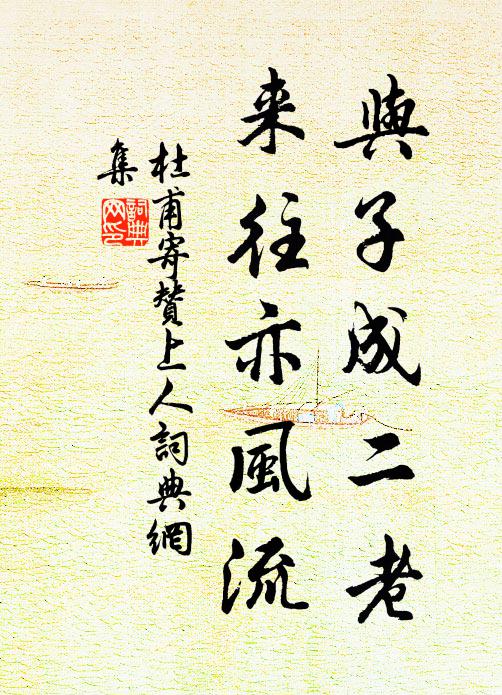 與子成二老
来往亦風流
杜甫寄贊上人詞典網
集
詞典
网印